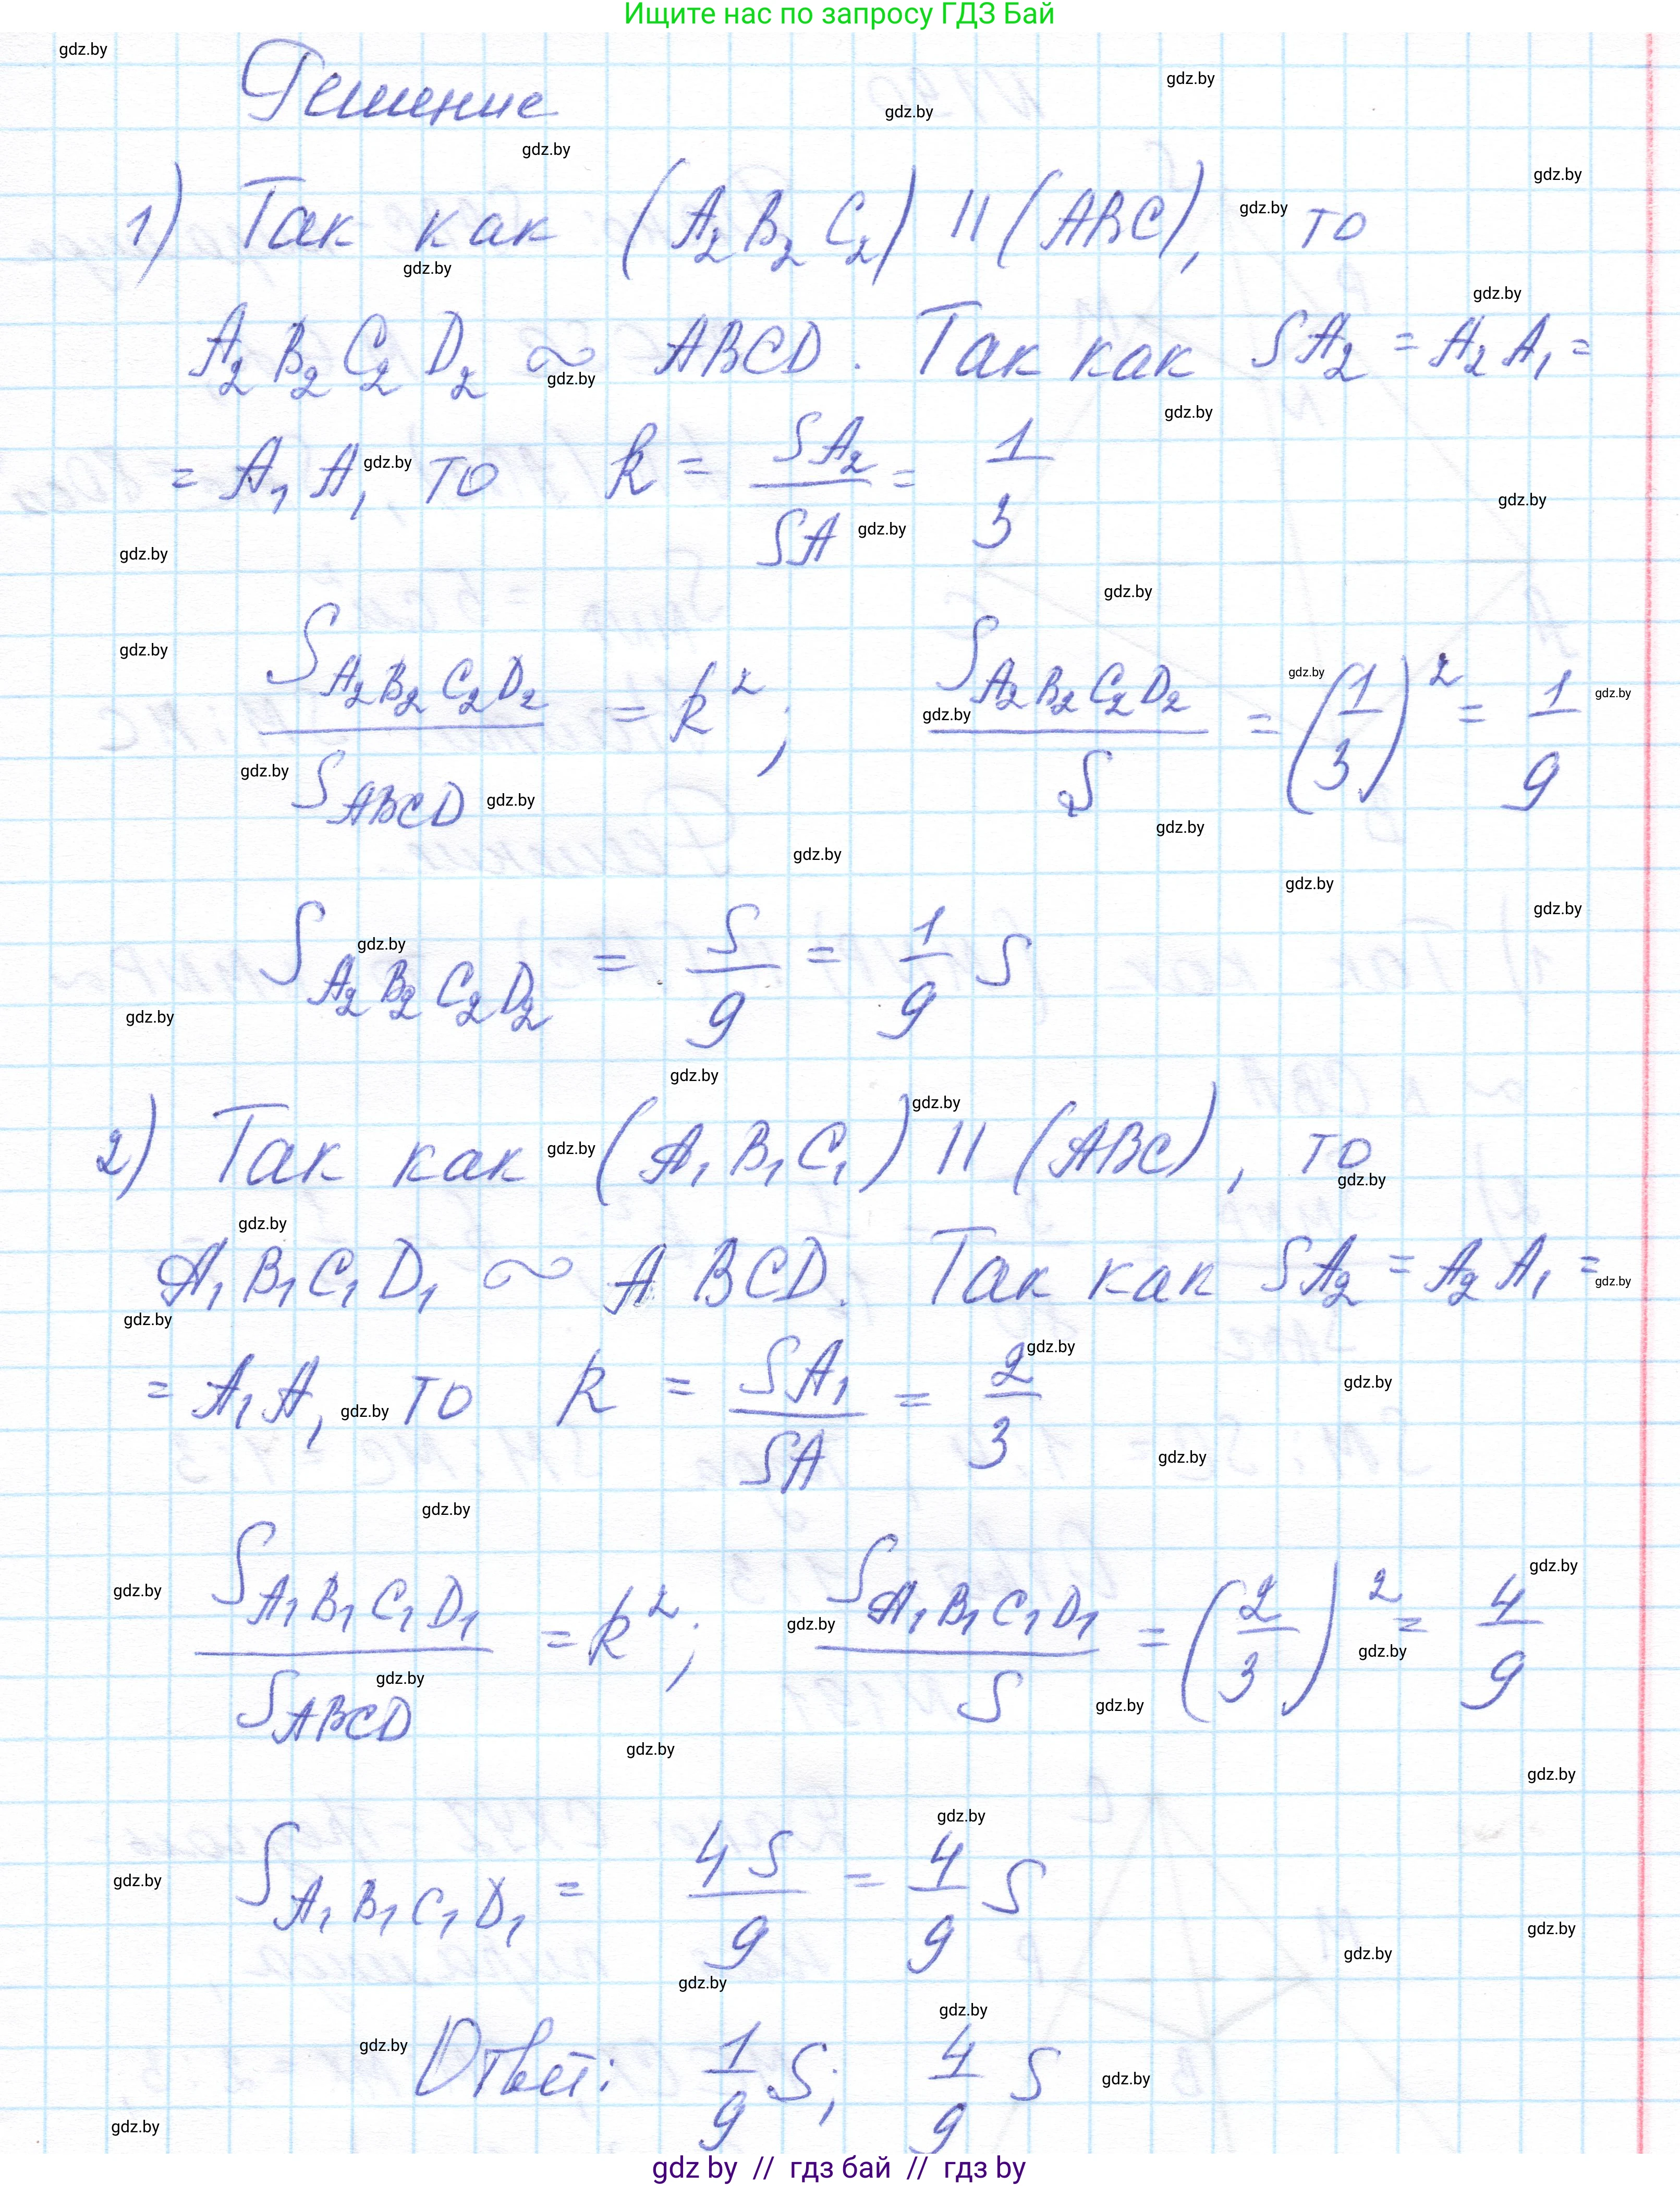 Ищите нас по запросу ГДЗ Бай
Решение
1) Так как (A₂B₂C₂) || (ABC), то
A₂B₂C₂D₂ ~ ABCD. Так как SA₂ = A₂A₁ =
= A₁A, то k = SA₂/SA = 1/3
S_A₂B₂C₂D₂/S_ABCD = k²; S_A₂B₂C₂D₂/S = (1/3)² = 1/9
S_A₂B₂C₂D₂ = S/9 = 1/9 S
2) Так как (A₁B₁C₁) || (ABC), то
A₁B₁C₁D₁ ~ ABCD. Так как SA₂ = A₂A₁ =
= A₁A, то k = SA₁/SA = 2/3
S_A₁B₁C₁D₁/S_ABCD = k²; S_A₁B₁C₁D₁/S = (2/3)² = 4/9
S_A₁B₁C₁D₁ = 4S/9 = 4/9 S
Ответ: 1/9 S; 4/9 S
gdz by // гдз бай // гдз by